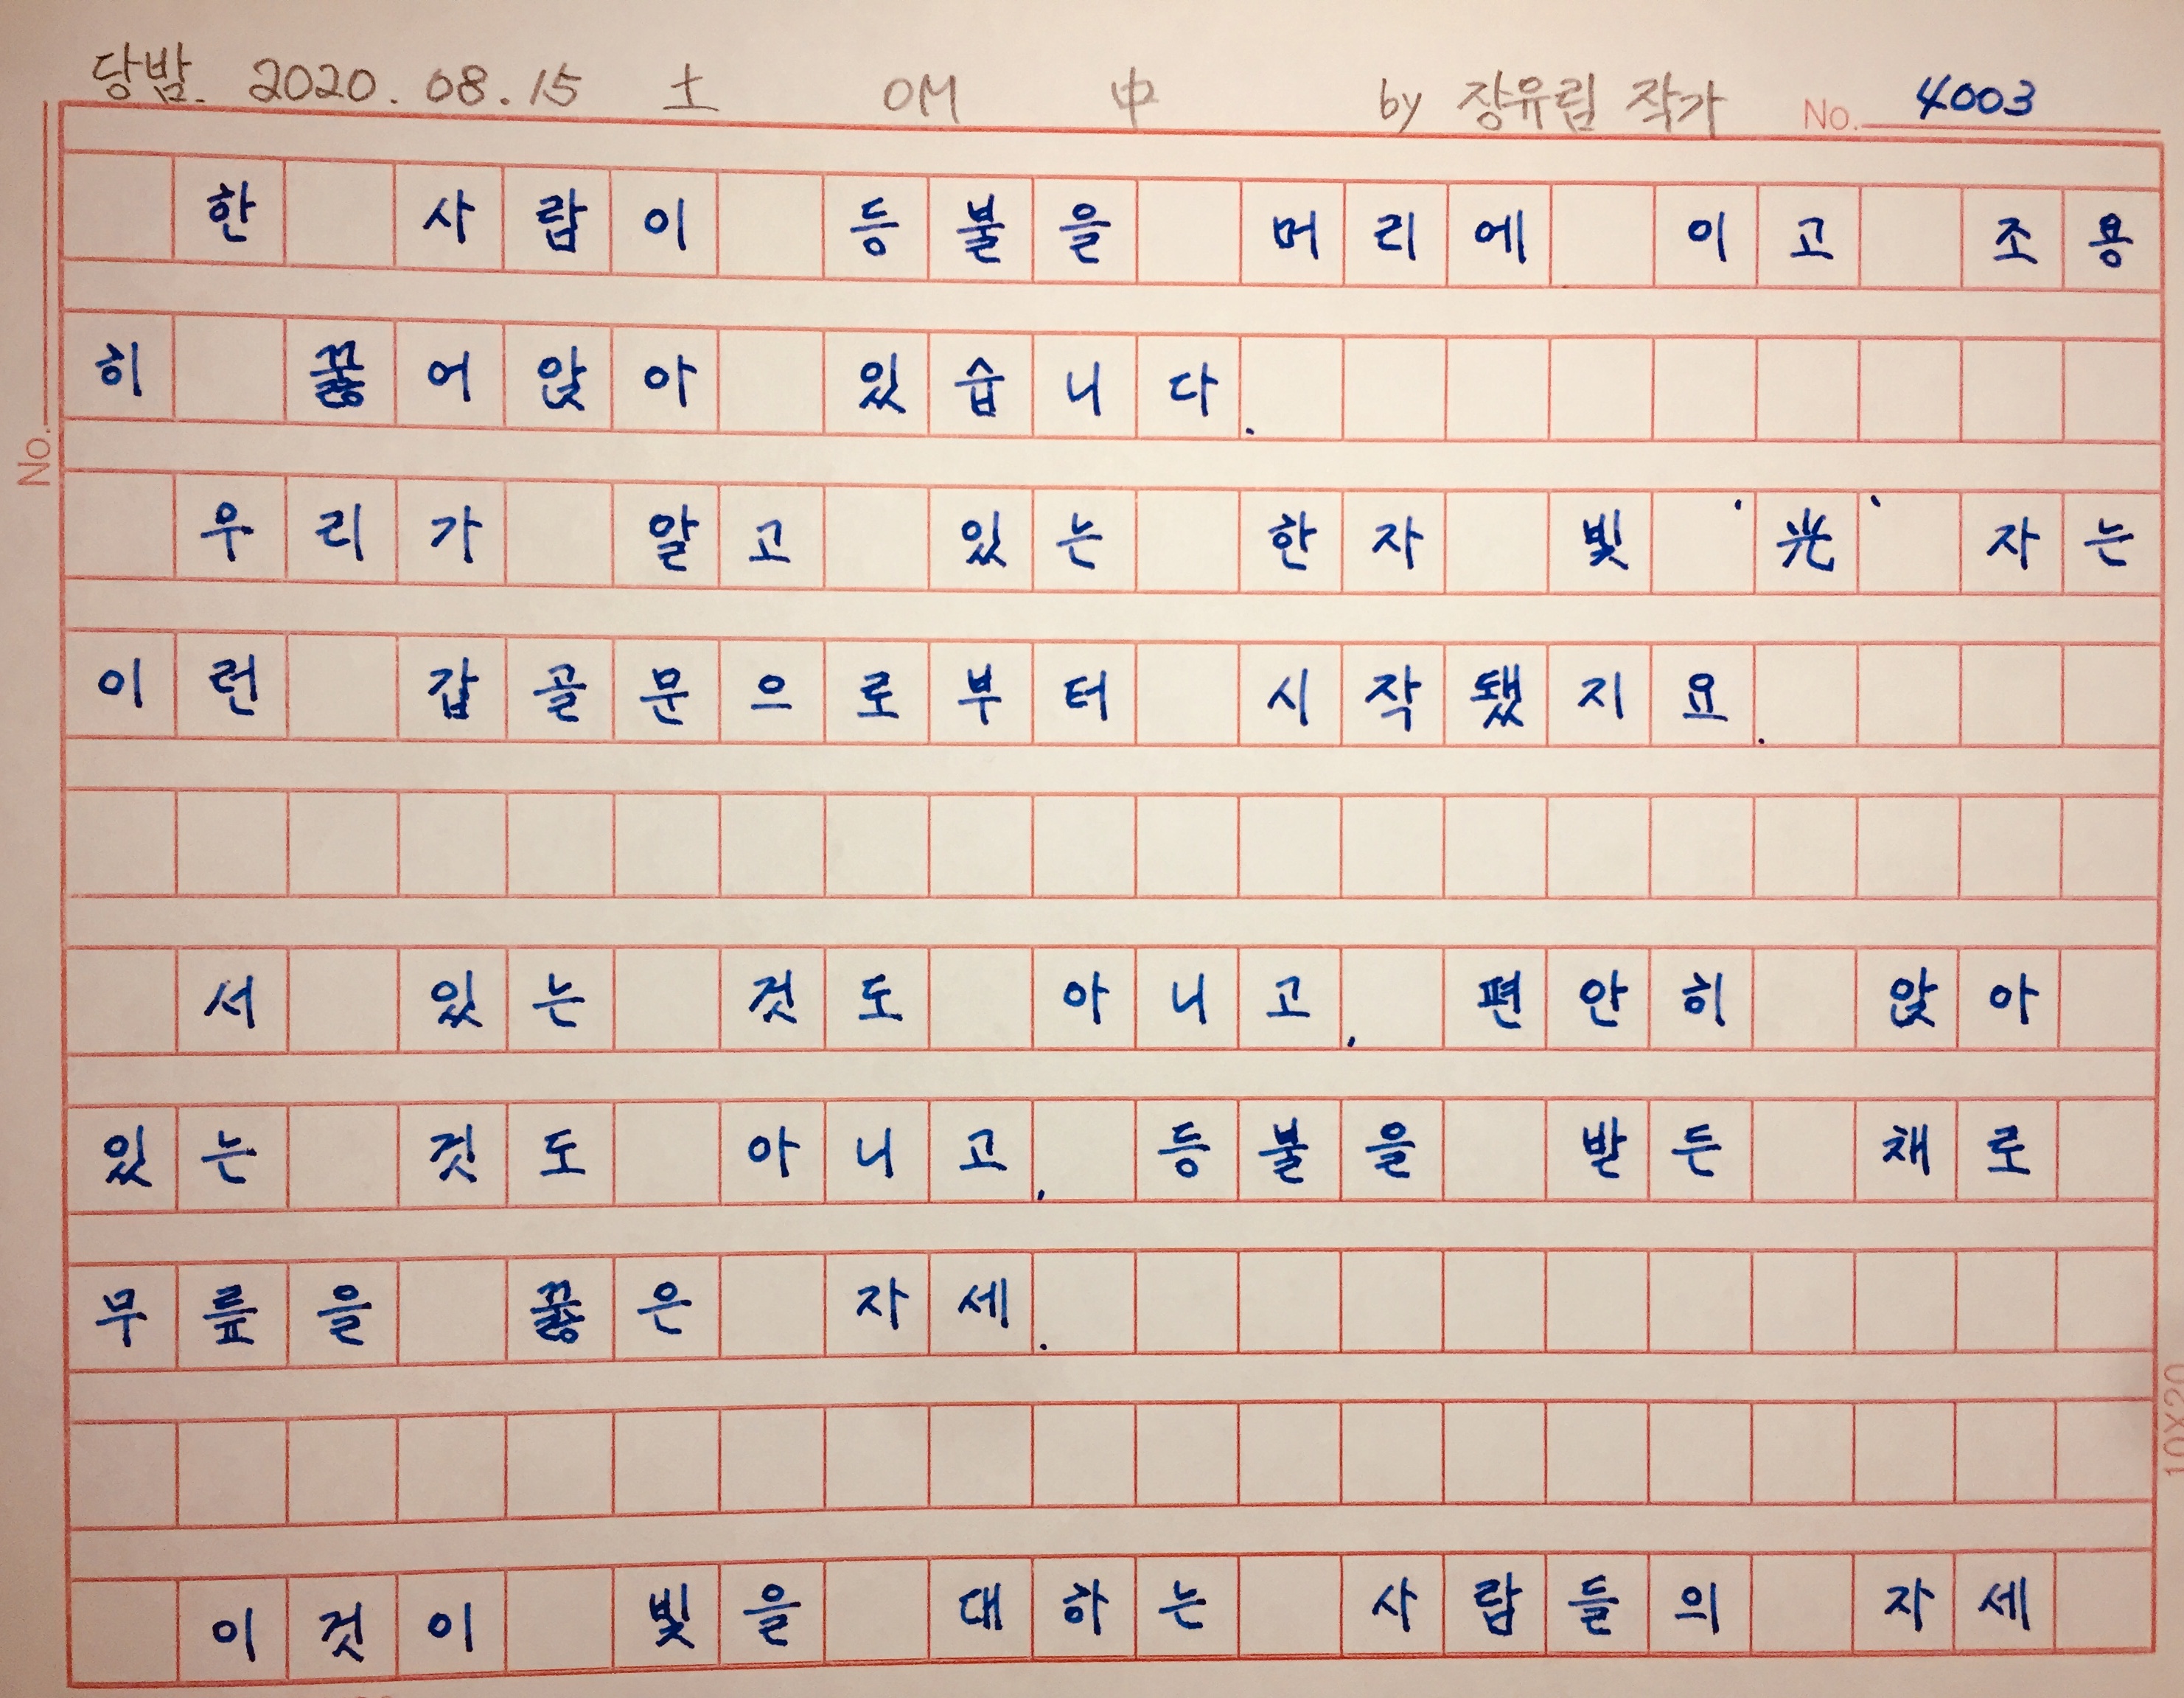 당밤. 2020. 08. 15 土 OM 中 by 장유림 작가 No. 4003
한 사람이 등불을 머리에 이고 조용
히 꿇어앉아 있습니다.
우리가 알고 있는 한자 빛 '光' 자는
이런 갑골문으로부터 시작됐지요.
서 있는 것도 아니고, 편안히 앉아
있는 것도 아니고, 등불을 받든 채로
무릎을 꿇은 자세.
이것이 빛을 대하는 사람들의 자세
No.
10X20